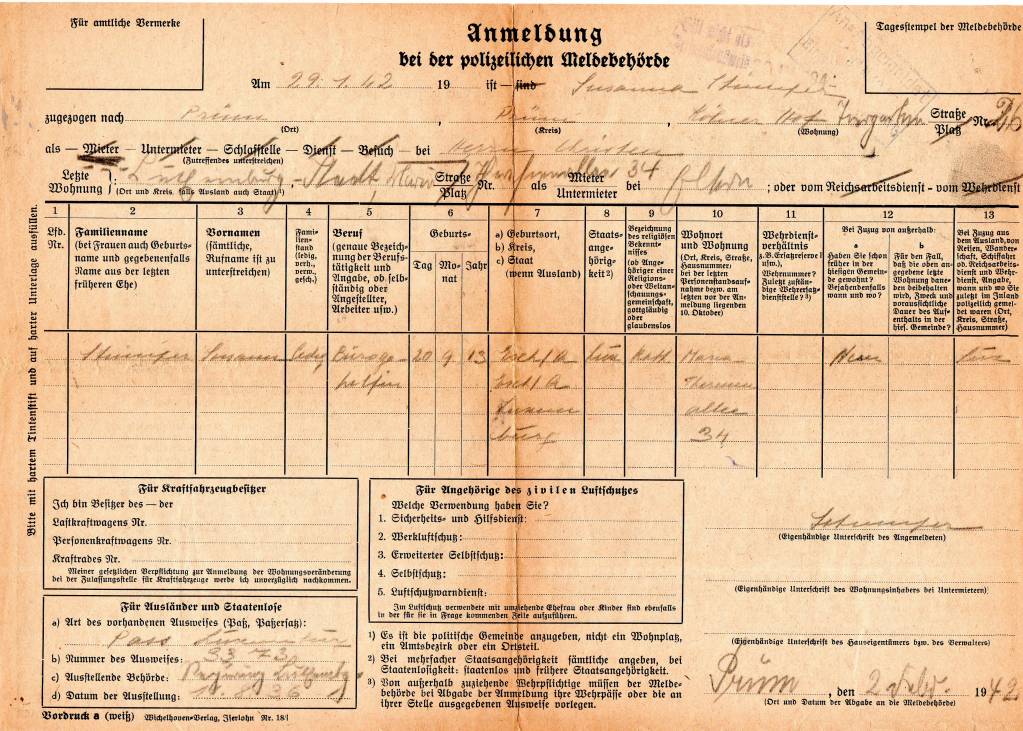 Für amtliche Vermerke
Anmeldung
bei der polizeilichen Meldebehörde
Tagesstempel der Meldebehörde
Am 29.1.42 19 ist – sind Susanna
zugezogen nach Prüm , Prüm , Kölner Hof Straße Platz Nr. 26
(Ort) (Kreis) (Wohnung)
als – Mieter – Untermieter – Schlafstelle – Dienst – Besuch – bei Herrn
(Zutreffendes unterstreichen)
Letzte Wohnung }: Luxemburg-Stadt, Straße Platz Nr. 34 als Mieter Untermieter bei Eltern ; oder vom Reichsarbeitsdienst - vom Wehrdienst
(Ort und Kreis falls Ausland auch Staat)
Bitte mit hartem Tintenstift und auf harter Unterlage ausfüllen.
1 2 3 4 5 6 7 8 9 10 11 12 13
Lfd. Nr.
Familienname
(bei Frauen auch Geburtsname und gegebenenfalls Name aus der letzten früheren Ehe)
Vornamen
(sämtliche, Rufname ist zu unterstreichen)
Familienstand
(ledig, verh., verw., gesch.)
Beruf
(genaue Bezeichnung der Berufstätigkeit und Angabe, ob selbständig oder Angestellter, Arbeiter usw.)
Geburts-
Tag Monat Jahr
a) Geburtsort,
b) Kreis,
c) Staat
(wenn Ausland)
Staatsangehörigkeit 2)
Bezeichnung des religiösen Bekenntnisses
(ob Angehöriger einer Religions- oder Weltanschauungsgemeinschaft, gottgläubig oder glaubenslos
Wohnort und Wohnung
(Ort, Kreis, Straße, Hausnummer)
bei der letzten Personenstandsaufnahme bezw. am letzten vor der Anmeldung liegenden 10. Oktober)
Wehrdienstverhältnis
(z.B. Ersatzreserve I usw.), Wehrnummer? Zuletzt zuständige Wehrersatzdienststelle? 3)
Bei Zuzug von außerhalb:
a
Haben Sie schon früher in der hiesigen Gemeinde gewohnt? Bejahendenfalls wann und wo?
b
Für den Fall, daß die oben angegebene letzte Wohnung daneben beibehalten wird, Zweck und voraussichtliche Dauer des Aufenthalts in der hies. Gemeinde?
Bei Zuzug aus dem Ausland, von Reisen, Wanderschaft, Schiffahrt od. Reichsarbeitsdienst und Wehrdienst, Angabe, wann und wo Sie zuletzt im Inland polizeilich gemeldet waren (Ort, Kreis, Straße, Hausnummer)
Susanna ledig Bürogehilfin 20 9 13 Esch/A Lux Kath Maria
Esch/A Theresien
Luxemburg allee
34
Für Kraftfahrzeugbesitzer
Ich bin Besitzer des — der
Lastkraftwagens Nr.
Personenkraftwagens Nr.
Kraftrades Nr.
Meiner gesetzlichen Verpflichtung zur Anmeldung der Wohnungsveränderung
bei der Zulassungsstelle für Kraftfahrzeuge werde ich unverzüglich nachkommen.
Für Ausländer und Staatenlose
a) Art des vorhandenen Ausweises (Paß, Paßersatz):
Pass
b) Nummer des Ausweises:
c) Ausstellende Behörde:
d) Datum der Ausstellung:
Vordruck a (weiß) Wichelhoven-Verlag, Iserlohn Nr. 18/I
Für Angehörige des zivilen Luftschutzes
Welche Verwendung haben Sie?
1. Sicherheits- und Hilfsdienst:
2. Werkluftschutz:
3. Erweiterter Selbstschutz:
4. Selbstschutz:
5. Luftschutzwarndienst:
Im Luftschutz verwendete mit umziehende Ehefrau oder Kinder sind ebenfalls
in der für sie in Frage kommenden Zeile aufzuführen.
1) Es ist die politische Gemeinde anzugeben, nicht ein Wohnplatz,
ein Amtsbezirk oder ein Ortsteil.
2) Bei mehrfacher Staatsangehörigkeit sämtliche angeben, bei
Staatenlosigkeit: staatenlos und frühere Staatsangehörigkeit.
3) Von außerhalb zuziehende Wehrpflichtige müssen der Meldebehörde
bei Abgabe der Anmeldung ihre Wehrpässe oder die an
ihrer Stelle ausgegebenen Ausweise vorlegen.
(Eigenhändige Unterschrift des Angemeldeten)
(Eigenhändige Unterschrift des Wohnungsinhabers bei Untermietern)
(Eigenhändige Unterschrift des Hauseigentümers bzw. des Verwalters)
Prüm , den 2. Febr. 1942
(Ort und Datum der Abgabe an die Meldebehörde)